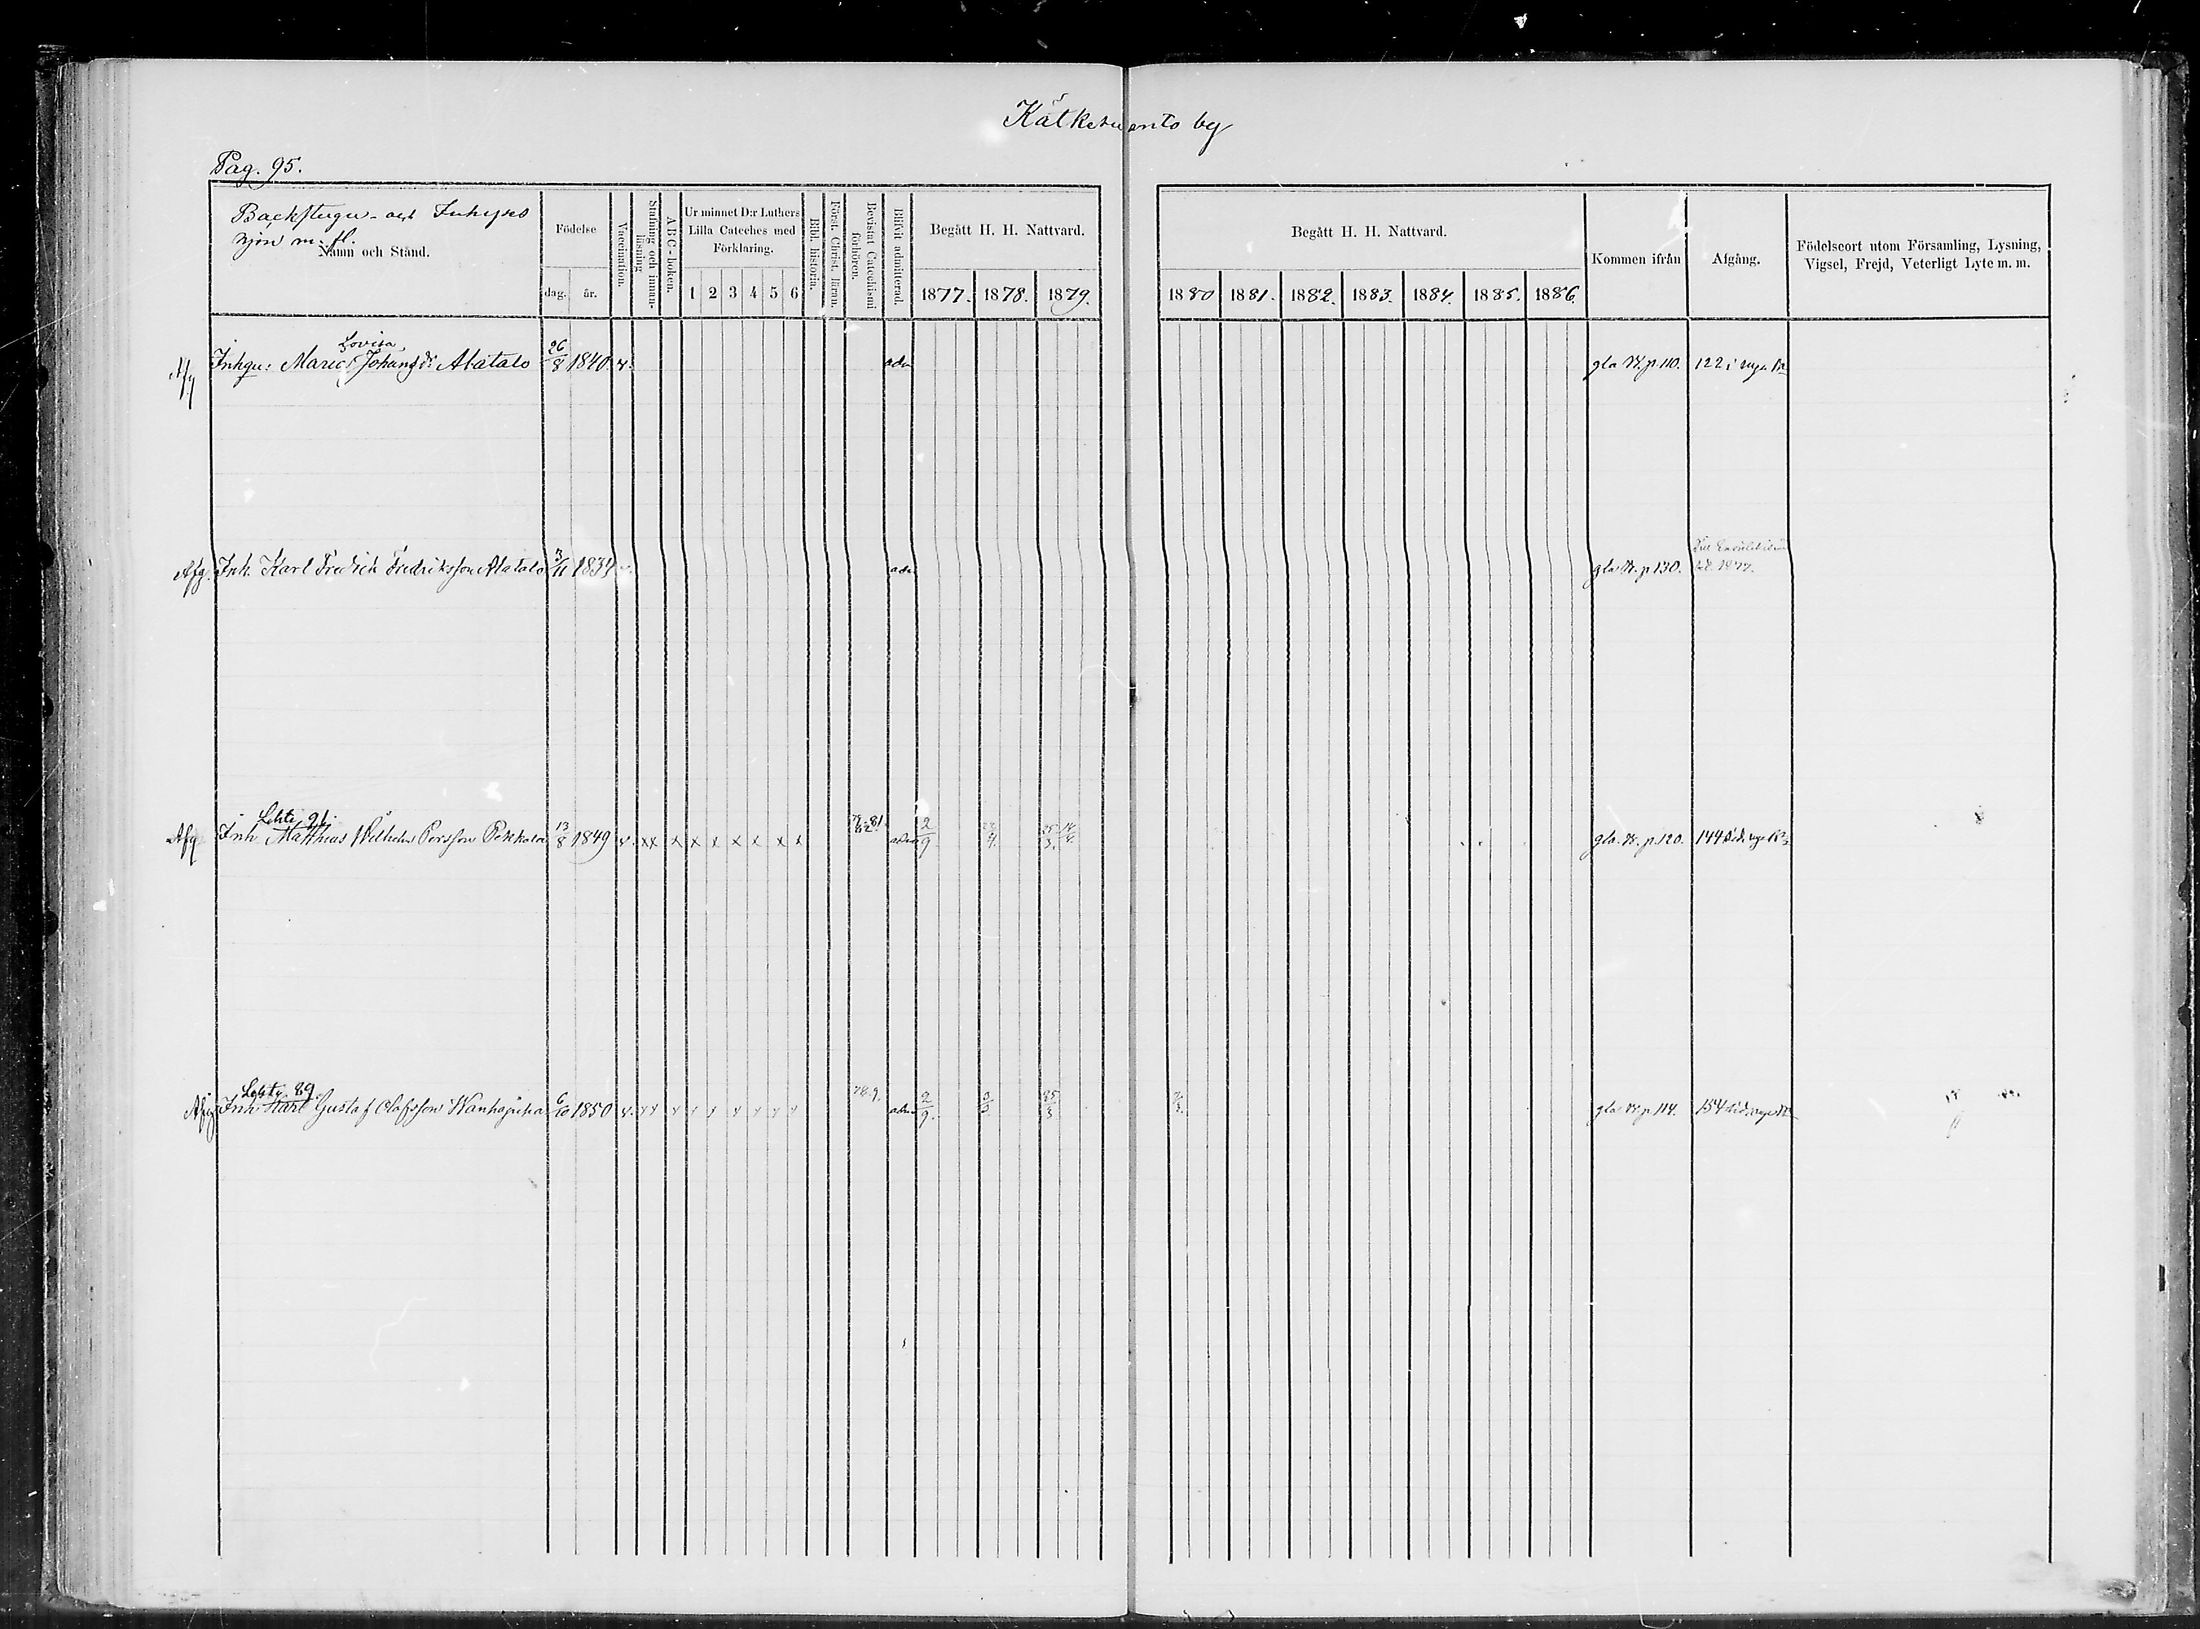 Kätkesuanto by
Pag. 95.
Backstugu- och Inhyses
hjon m. fl.
Namn och Stånd.
Födelse
dag.
år.
Vaccination.
Stafning och innan-
läsning
ABC-boken.
Ur minnet D:r Luthers
Lilla Cateches med
Förklaring.
1 2 3 4 5 6
Bibl. historia.
Först. Christ. läran.
Bevistat Catechismi
förhören.
Blifvit admitterad.
Begått H. H. Nattvard.
1877. 1878. 1879.
Begått H. H. Nattvard.
1880 1881. 1882. 1883. 1884. 1885. 1886.
Kommen ifrån
Afgång.
Födelseort utom Församling, Lysning,
Vigsel, Frejd, Veterligt Lyte m. m.
Lovisa
Afg Inhqu: Maria Johansdr Alatalo 26/8 1840. v. adm gla K. p. 110. 122 i nya K
Afg. Inh. Karl Fredrick Fredriksson Alatalo 3/11 1834 v. adm gla K. p 130. 1877.
Afg Inh Matthias Wilhelm Persson Pekkala 13/8 1849 v. xx x x x x x x x adm 2/9 gla K. p. 120. 144
89
Afg Inh Karl Gustaf Olofsson Wanhapiha 6/10 1850 v. xx x x x x x x x 78.9. adm 2/9. 25/3 gla K. p 114. 154